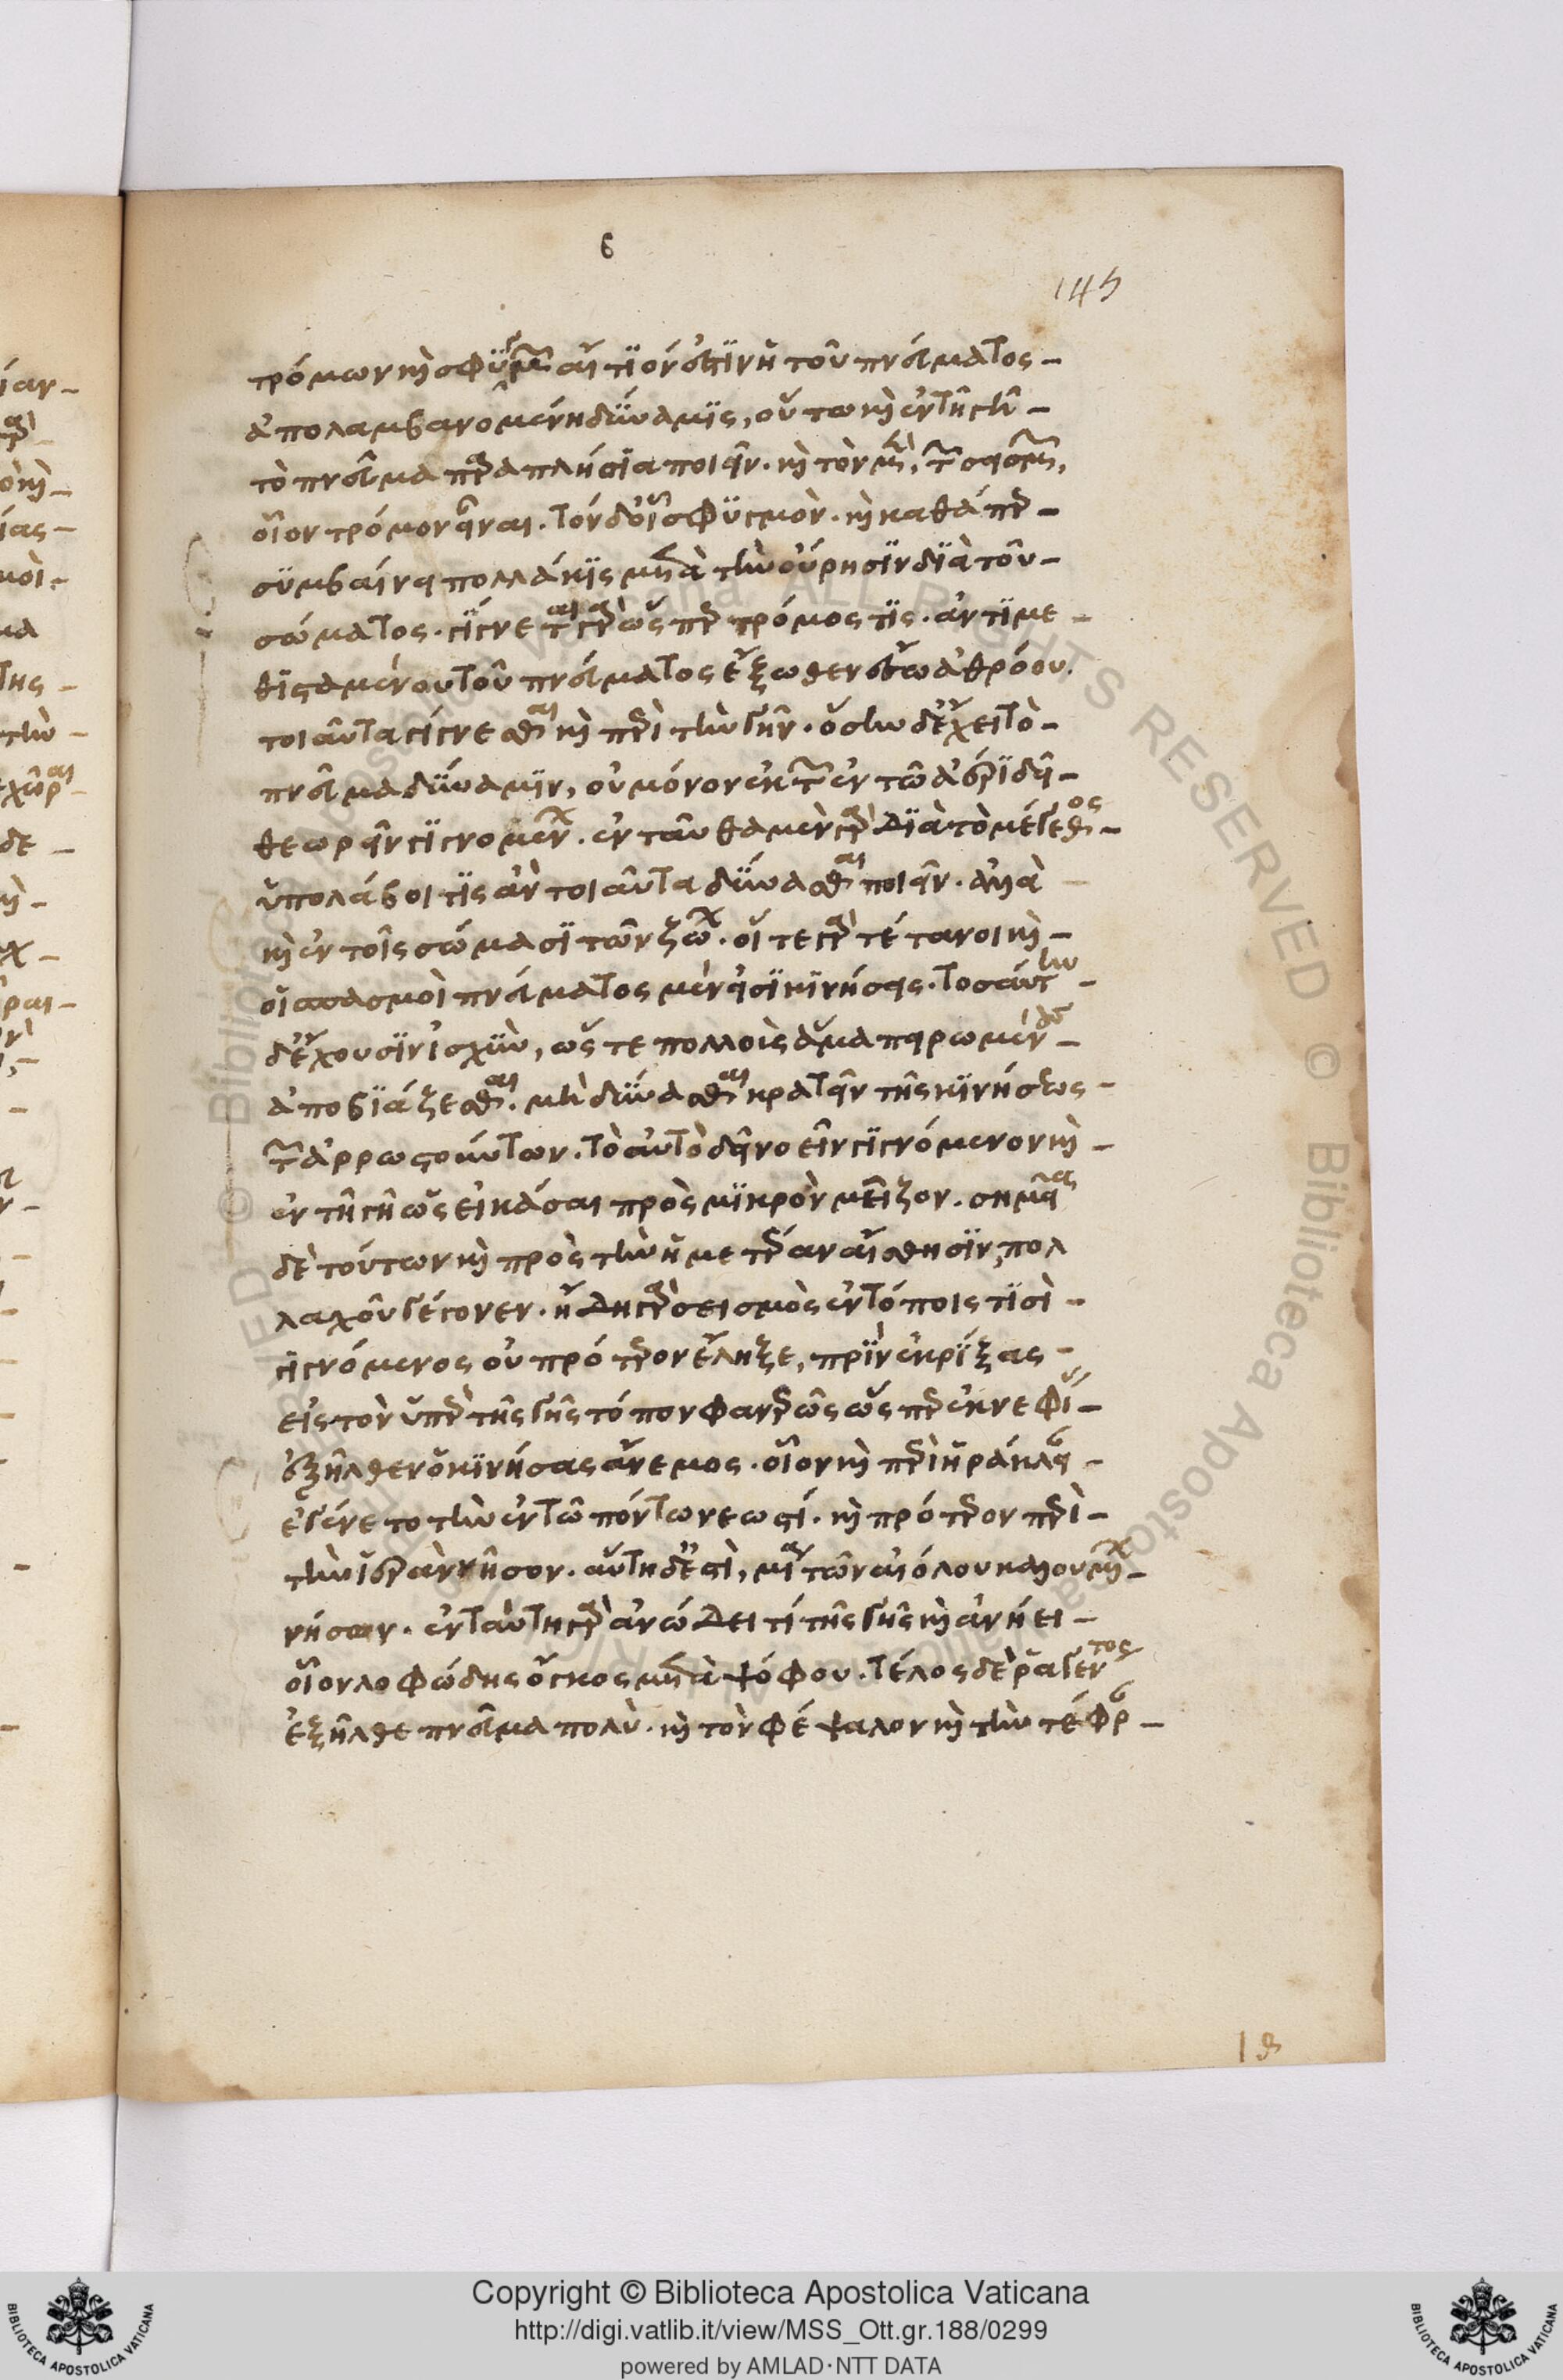 6
145
τρόμων καὶ σφϋγμῶν αἴτϊόν ἐστϊν ἡ τοῦ πνεύματος -
ἀπολαμβανομένη δΰναμϊς, οὕτω καὶ ἐν τῆ γῆ -
τὸ πνεῦμα παραπλήσϊα ποιεῖν. καὶ τὸν μὲν, τῶν σεισμῶν,
οἷον τρόμον εἶναι. τὸν δ' οἷον σφϋγμὸν. καὶ καθάπερ -
σϋμβαίνει πολλάκϊς μετὰ τὴν οὔρησϊν δϊὰ τοῦ -
σώματος. γίγνεται γὰρ ὥσπερ τρόμος τϊς. ἀντϊμε -
θϊσταμένου τοῦ πνεύματος ἔξωθεν εἴσω ἀθρόου.
τοιαῦτα γίγνεσθαι καὶ περὶ τὴν γῆν. ὅσην δ' ἔχει τὸ -
πνεῦμα δΰναμϊν, οὐ μόνον ἐκ τῶν ἐν τῶ ἀέρϊ δεῖ -
θεωρεῖν γϊγνομένων. ἐνταῦθα μὲν γὰρ δϊὰ τὸ μέγεθος -
ὑπολάβοι τϊς ἂν τοιαῦτα δΰνασθαι ποιεῖν. ἀλλὰ -
καὶ ἐν τοῖς σώμασϊ τῶν ζώων. οἵ τε γὰρ τέτανοι καὶ -
οἱ σπασμοὶ πνεύματος μέν εἰσϊ κϊνήσεις. τοσαύτην -
δ' ἔχουσϊν ἰσχὺν, ὥστε πολλοὺς ἅμα πειρωμένους -
ἀποβϊάζεσθαι. μὴ δΰνασθαι κρατεῖν τῆς κϊνήσεως -
τῶν ἀρρωστούντων. τὸ αὐτὸ δεῖ νοεῖν γϊγνόμενον καὶ -
ἐν τῆ γῆ ὡς εἰκάσαι πρὸς μϊκρὸν μεῖζον. σημεῖα
δὲ τούτων καὶ πρὸς τὴν ἡμετέραν αἴσθησϊν, πολ
λαχοῦ γέγονεν. ἤδη γὰρ σεισμὸς ἐν τόποις τϊσὶ -
γϊγνόμενος οὐ πρότερον ἔληξε, πρὶν ἐκρίξας -
εἰς τὸν ὑπὲρ τῆς γῆς τόπον φανερῶς ὥσπερ ἐκνεφί -
ἐξῆλθεν ὁ κϊνήσας ἄνεμος. οἷον καὶ περὶ ἡράκλει -
ἐγένετο τὴν ἐν τῶ πόντω νεωστί. καὶ πρότερον περὶ -
τὴν ἱερὰν νῆσον. αὕτη δ' ἐστὶ, μία τῶν αἰόλου καλουμένων -
νήσων. ἐν ταύτη γὰρ ἀνώδει τί τῆς γῆς καὶ ἀνήει -
οἷον λοφώδης ὄγκος μετὰ ψόφου. τέλος δὲ ῥαγέντος
ἐξῆλθε πνεῦμα πολὺ. καὶ τὸν φέψαλον καὶ τὴν τέφρ -
Copyright © Biblioteca Apostolica Vaticana
http://digi.vatlib.it/view/MSS_Ott.gr.188/0299
powered by AMLAD·NTT DATA